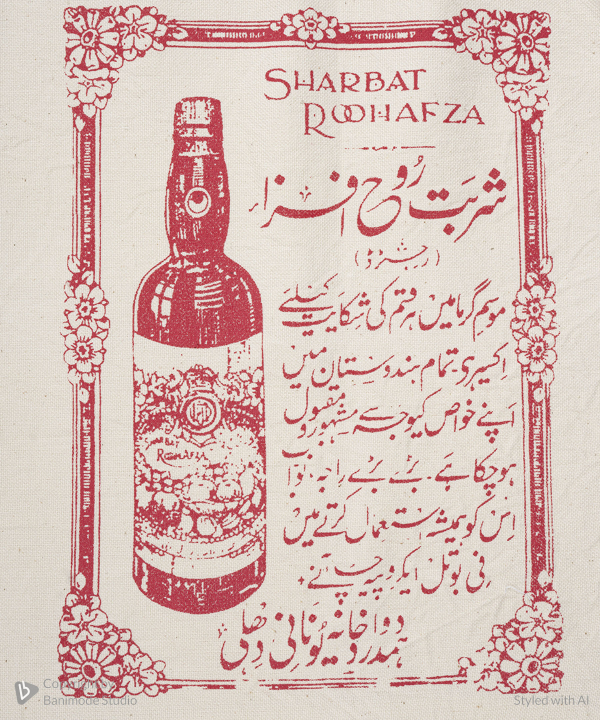 SHARBAT
ROOHAFZA
شربت روح افزا
(رجسٹرڈ)
موسم گرما میں ہر قسم کی شکایت کیلئے
اکسیر ہی تمام ہندوستان میں
اپنے خواص کیوجہ سے مشہور و مقبول
ہوچکا ہے۔ بڑے بڑے راجہ نواب
اس کو ہمیشہ استعمال کرتے ہیں
فی بوتل ایکروپیہ چار آنے
ہمدرد دواخانہ یونانی دھلی
SHARBAT
ROOHAFZA
Copyright by
Banimode Studio
Styled with AI